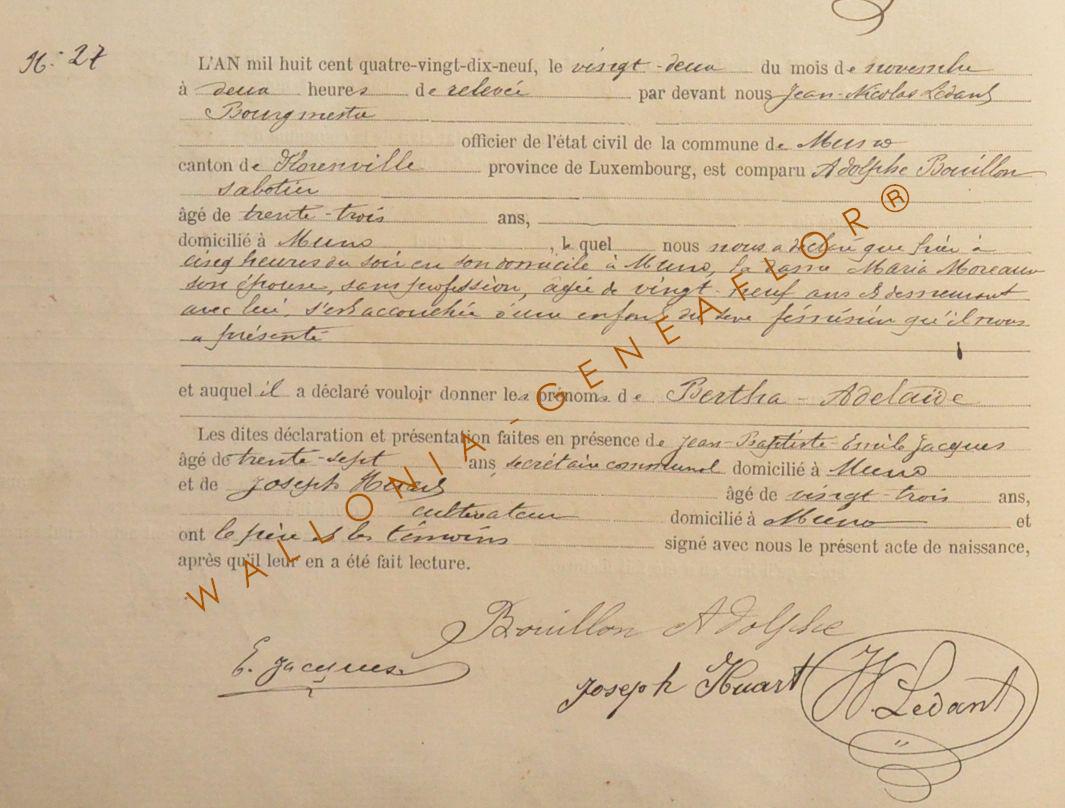 N.° 27
L'AN mil huit cent quatre-vingt-dix-neuf, le vingt-deux du mois de novembre
à deux heures de relevée par devant nous Jean-Nicolas Ledant
Bourgmestre
officier de l'état civil de la commune de Muno
canton de Florenville province de Luxembourg, est comparu Adolphe Bouillon
sabotier
âgé de trente-trois ans,
domicilié à Muno, lequel nous nous a déclaré que hier à
cinq heures du soir en son domicile à Muno, la dame Maria Moreaux
son épouse, sans profession, âgée de vingt-neuf ans et demeurant
avec lui, s'est accouchée d'une enfant du sexe féminin qu'il nous
a présenté
et auquel il a déclaré vouloir donner les prénoms de Bertha-Adelaïde
Les dites déclaration et présentation faites en présence de Jean-Baptiste-Emile Jacques
âgé de trente-sept ans, secrétaire communal domicilié à Muno
et de Joseph Huart âgé de vingt-trois ans,
cultivateur domicilié à Muno et
ont le père et les témoins signé avec nous le présent acte de naissance,
après qu'il leur en a été fait lecture.
Bouillon Adolphe
E. Jacques
Joseph Huart
N. Ledant
WALLONIA-GENEAFLOR®